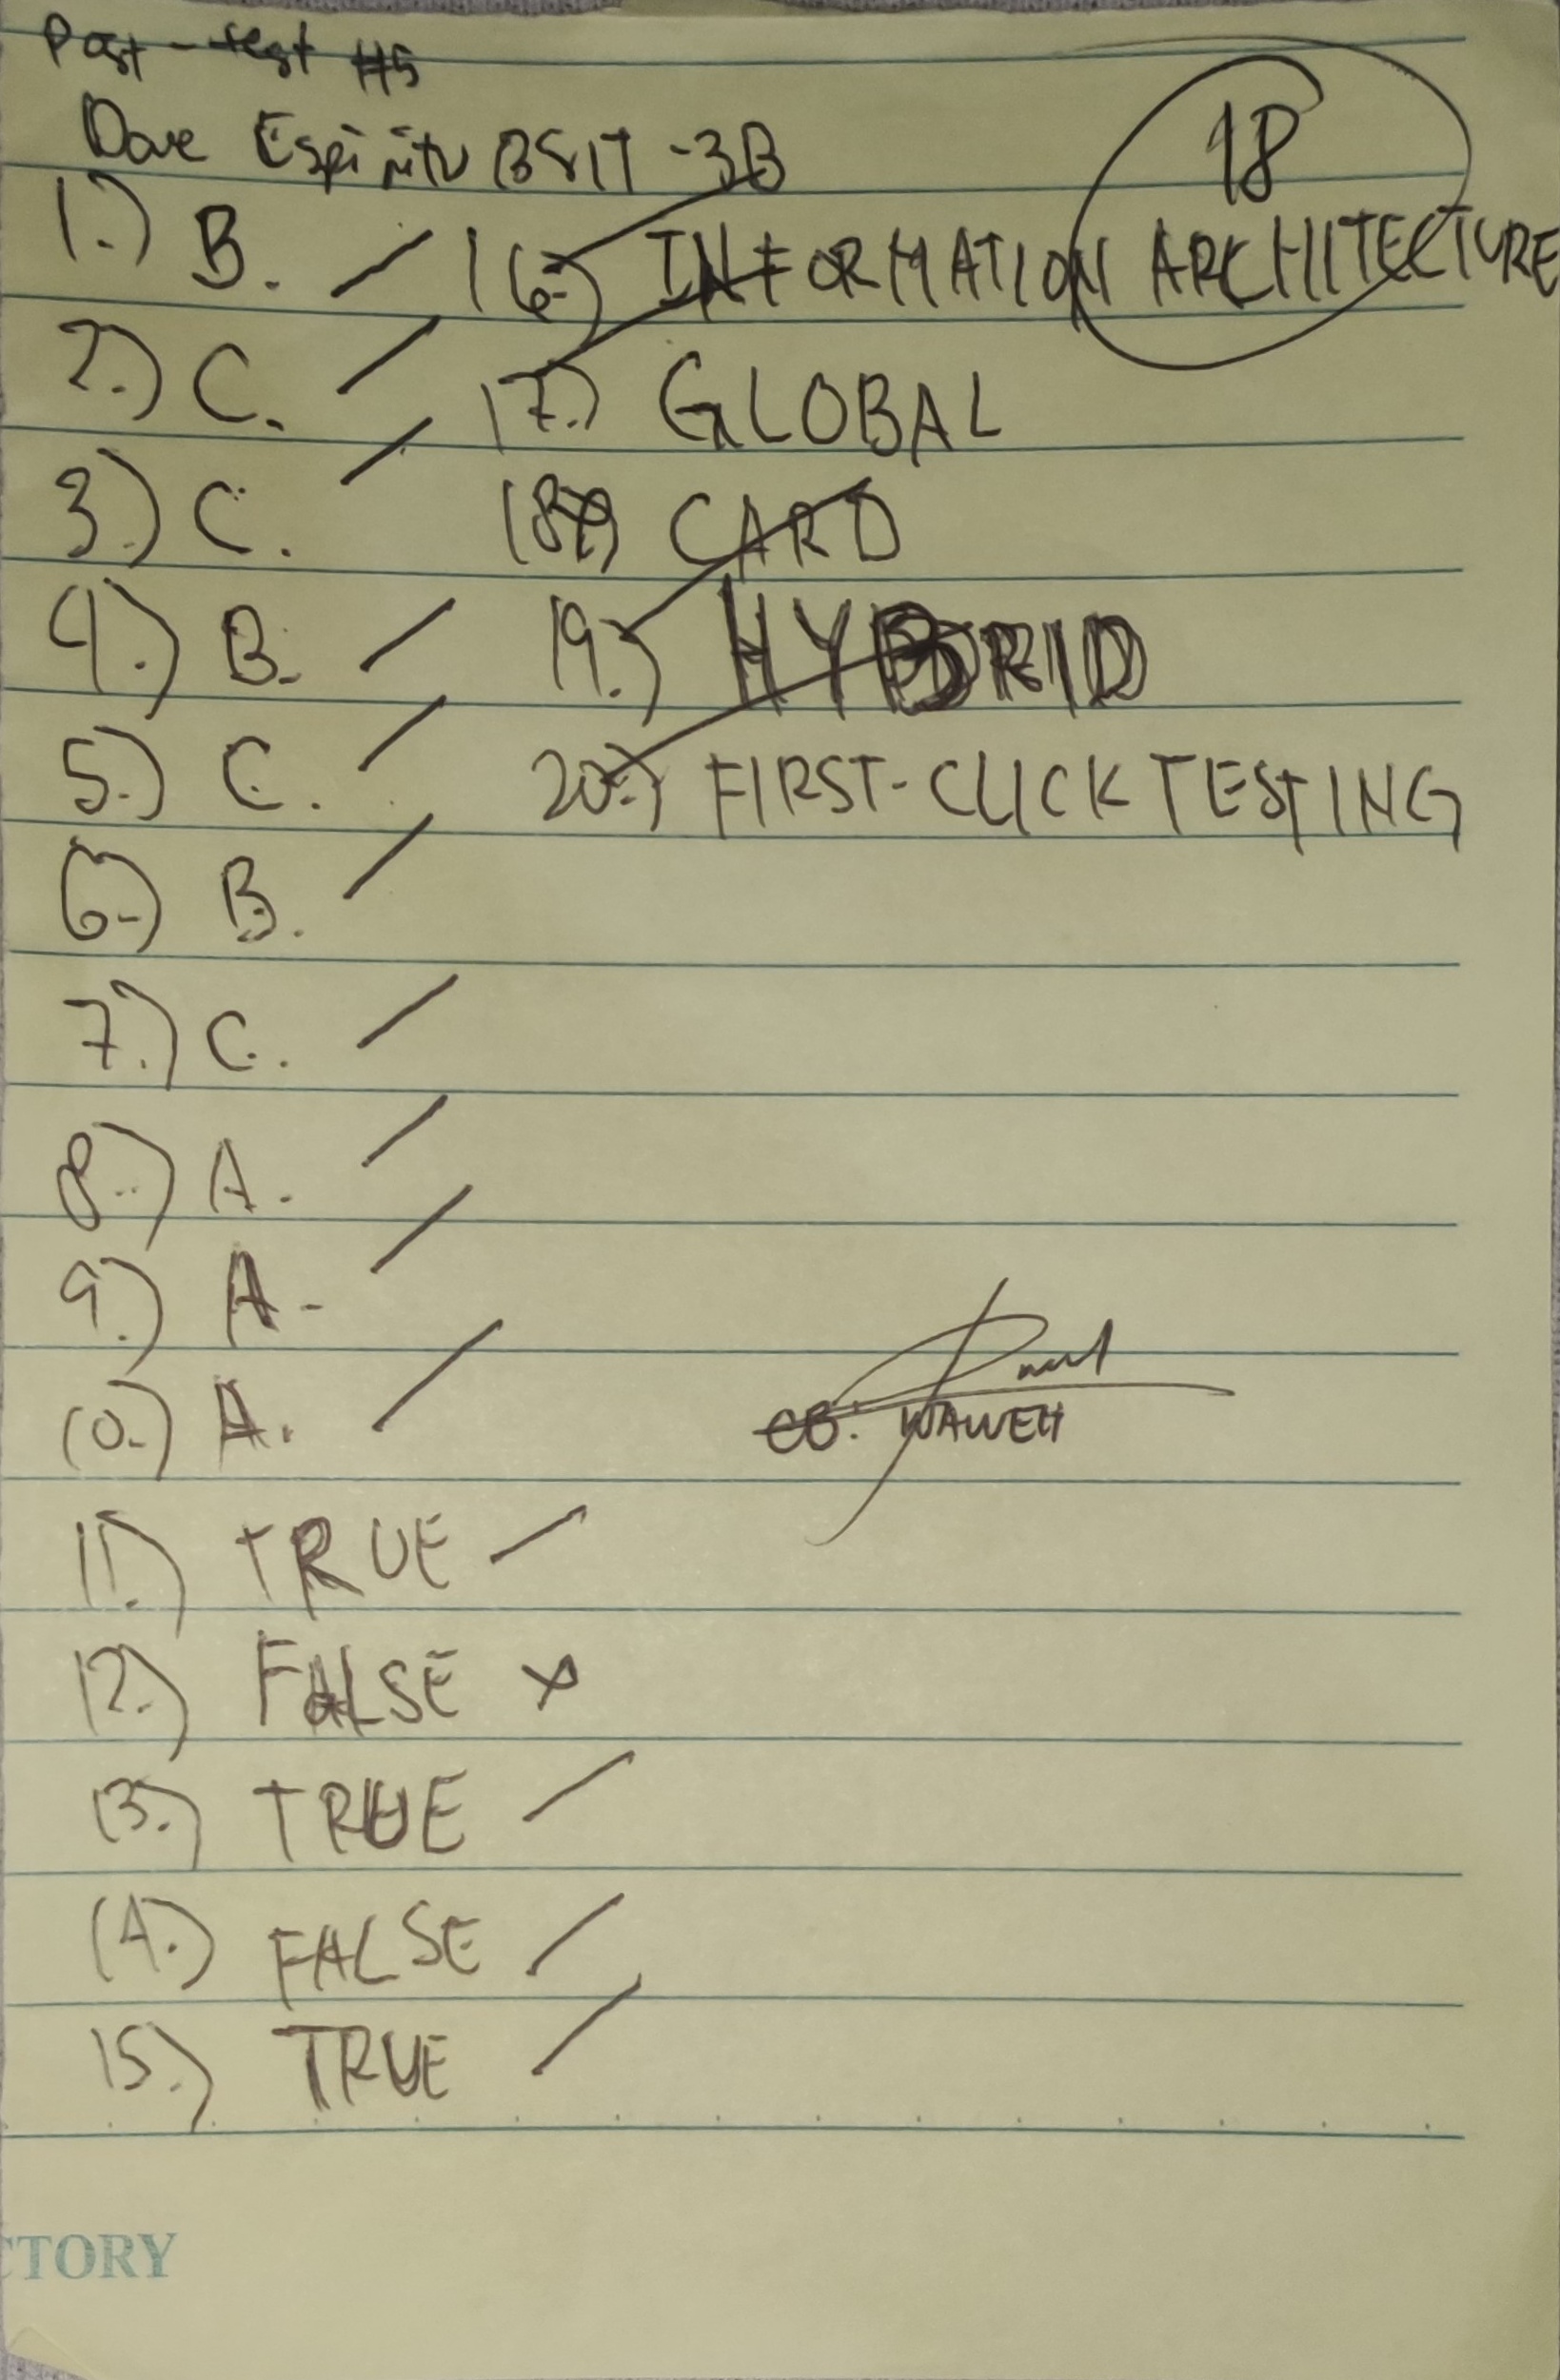 Post-test #5
Dave Espiritu BSIT-3B
18
1.) B.
2.) C.
3.) C.
4.) B.
5.) C.
6.) B.
7.) C.
8.) A.
9.) A.
10.) A.
11.) TRUE
12.) FALSE
13.) TRUE
14.) FALSE
15.) TRUE
16.) INFORMATION ARCHITECTURE
17.) GLOBAL
18.) CARD
19.) HYBRID
20.) FIRST-CLICK TESTING
CB: WAWEH
CTORY